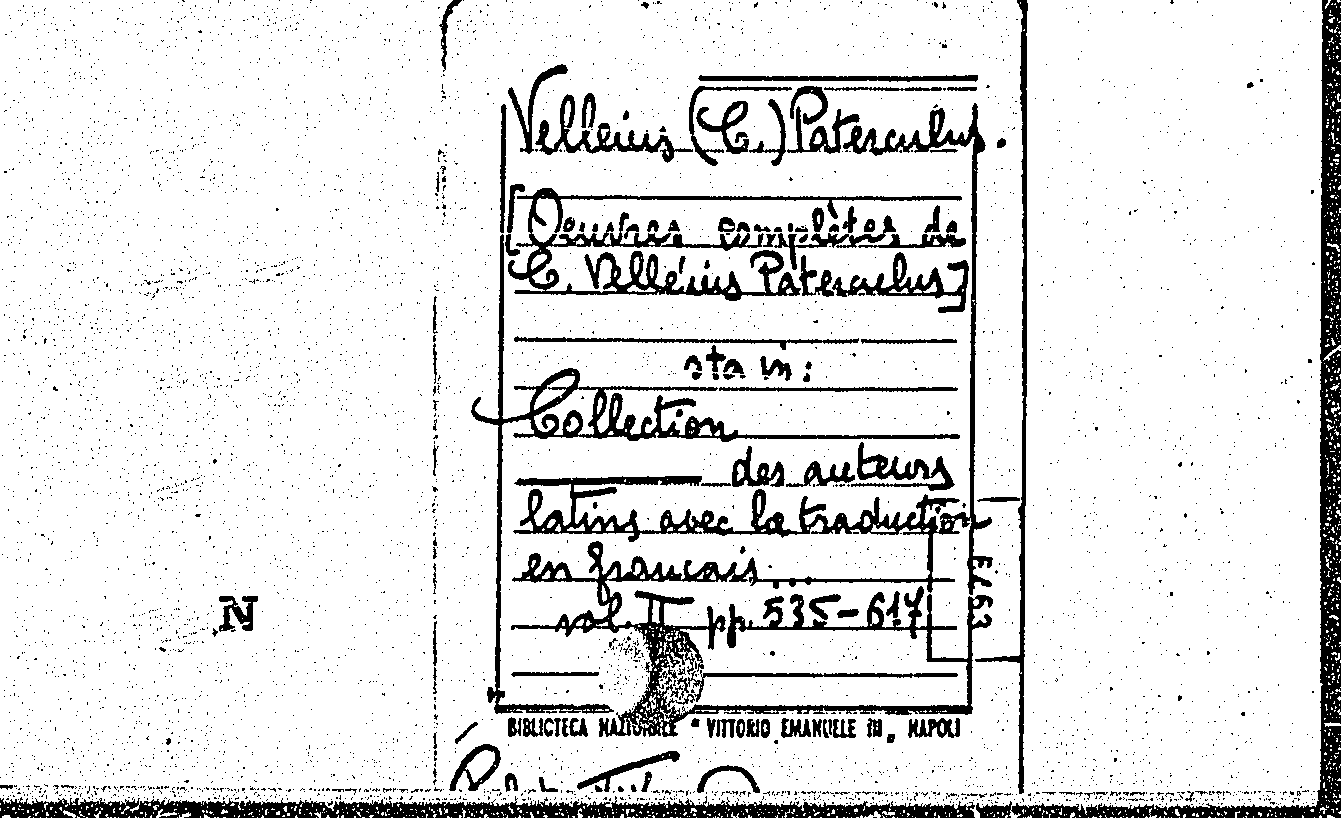 Velleius (C.) Paterculus.
[Oeuvres complètes de
C. Velléius Paterculus]
sta in:
Collection
des auteurs
latins avec la traduction
en francais...
vol. II pp. 535-617
N
BIBLIOTECA NAZIONALE "VITTORIO EMANUELE III„ NAPOLI